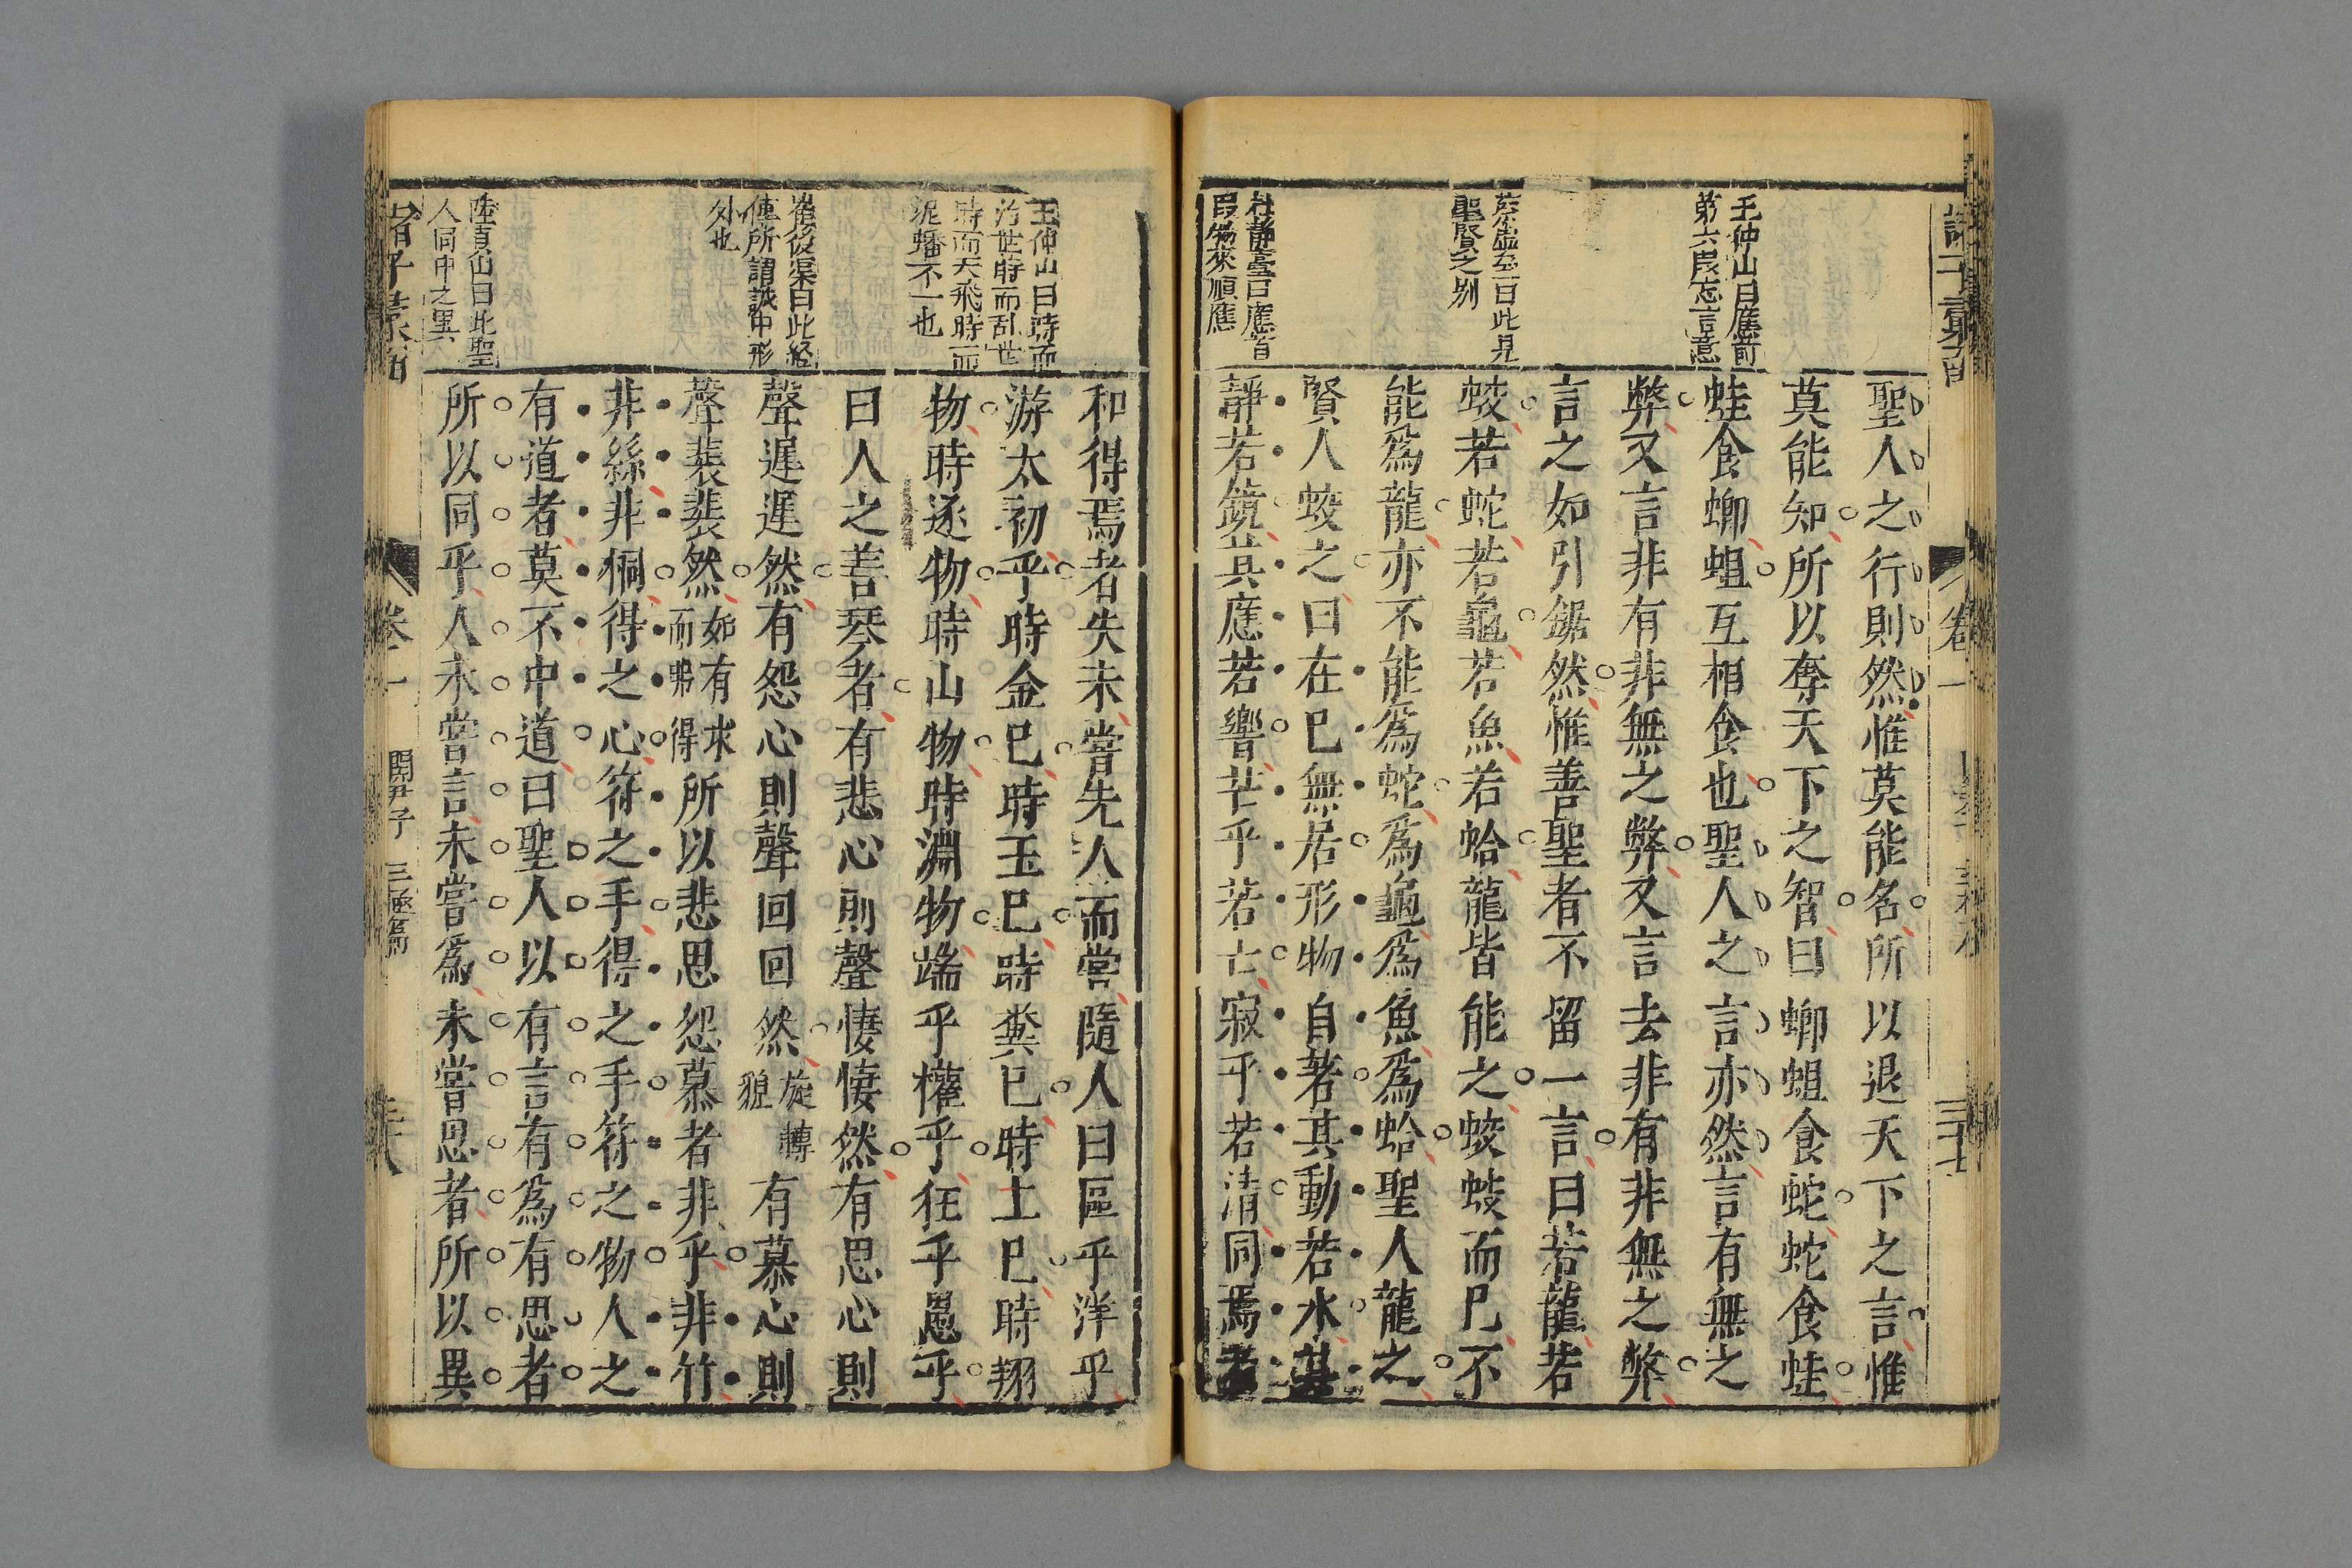 聖人之行則然惟莫能名所以退天下之言惟
莫能知所以奪天下之智曰蝍蛆食蛇蛇食蛙
蛙食蝍蛆互相食也聖人之言亦然言有無之
弊又言非有非無之弊又言去非有非無之弊
言之如引鋸然惟善聖者不留一言曰若龍若
蛟若蛇若龜若魚若蛤龍皆能之蛟蛟而已不
能爲龍亦不能爲蛇爲龜爲魚爲蛤聖人龍之
賢人蛟之曰在已無居形物自著其動若水其
靜若鏡其應若響芒乎若亡寂乎若清同焉者
王仲山曰應前
第六段忘言意
此見
聖賢之別
杜靜臺曰應首
段物來順應
卷一
三十七
和得焉者失未嘗先人而嘗隨人曰區乎洋乎
游太初乎時金已時玉已時糞已時土已時翔
物時逐物時山物時淵物端乎權乎狂乎愚乎
曰人之善琴者有悲心則聲悽悽然有思心則
聲遲遲然有怨心則聲回回然旋轉貌有慕心則
聲裴裴然如有求而弗得所以悲思怨慕者非手非竹
非絲非桐得之心符之手得之手符之物人之
有道者莫不中道曰聖人以有言有爲有思者
所以同乎人未嘗言未嘗爲未嘗思者所以異
王仲山曰時而
治世時而乱世
時而天飛時而
泥蟠不一也
崔後渠曰此経
傳所謂誠中形
外也
陸貞山曰此聖
人同中之異
諸子彙函
卷一
關尹子
三極篇
三十八